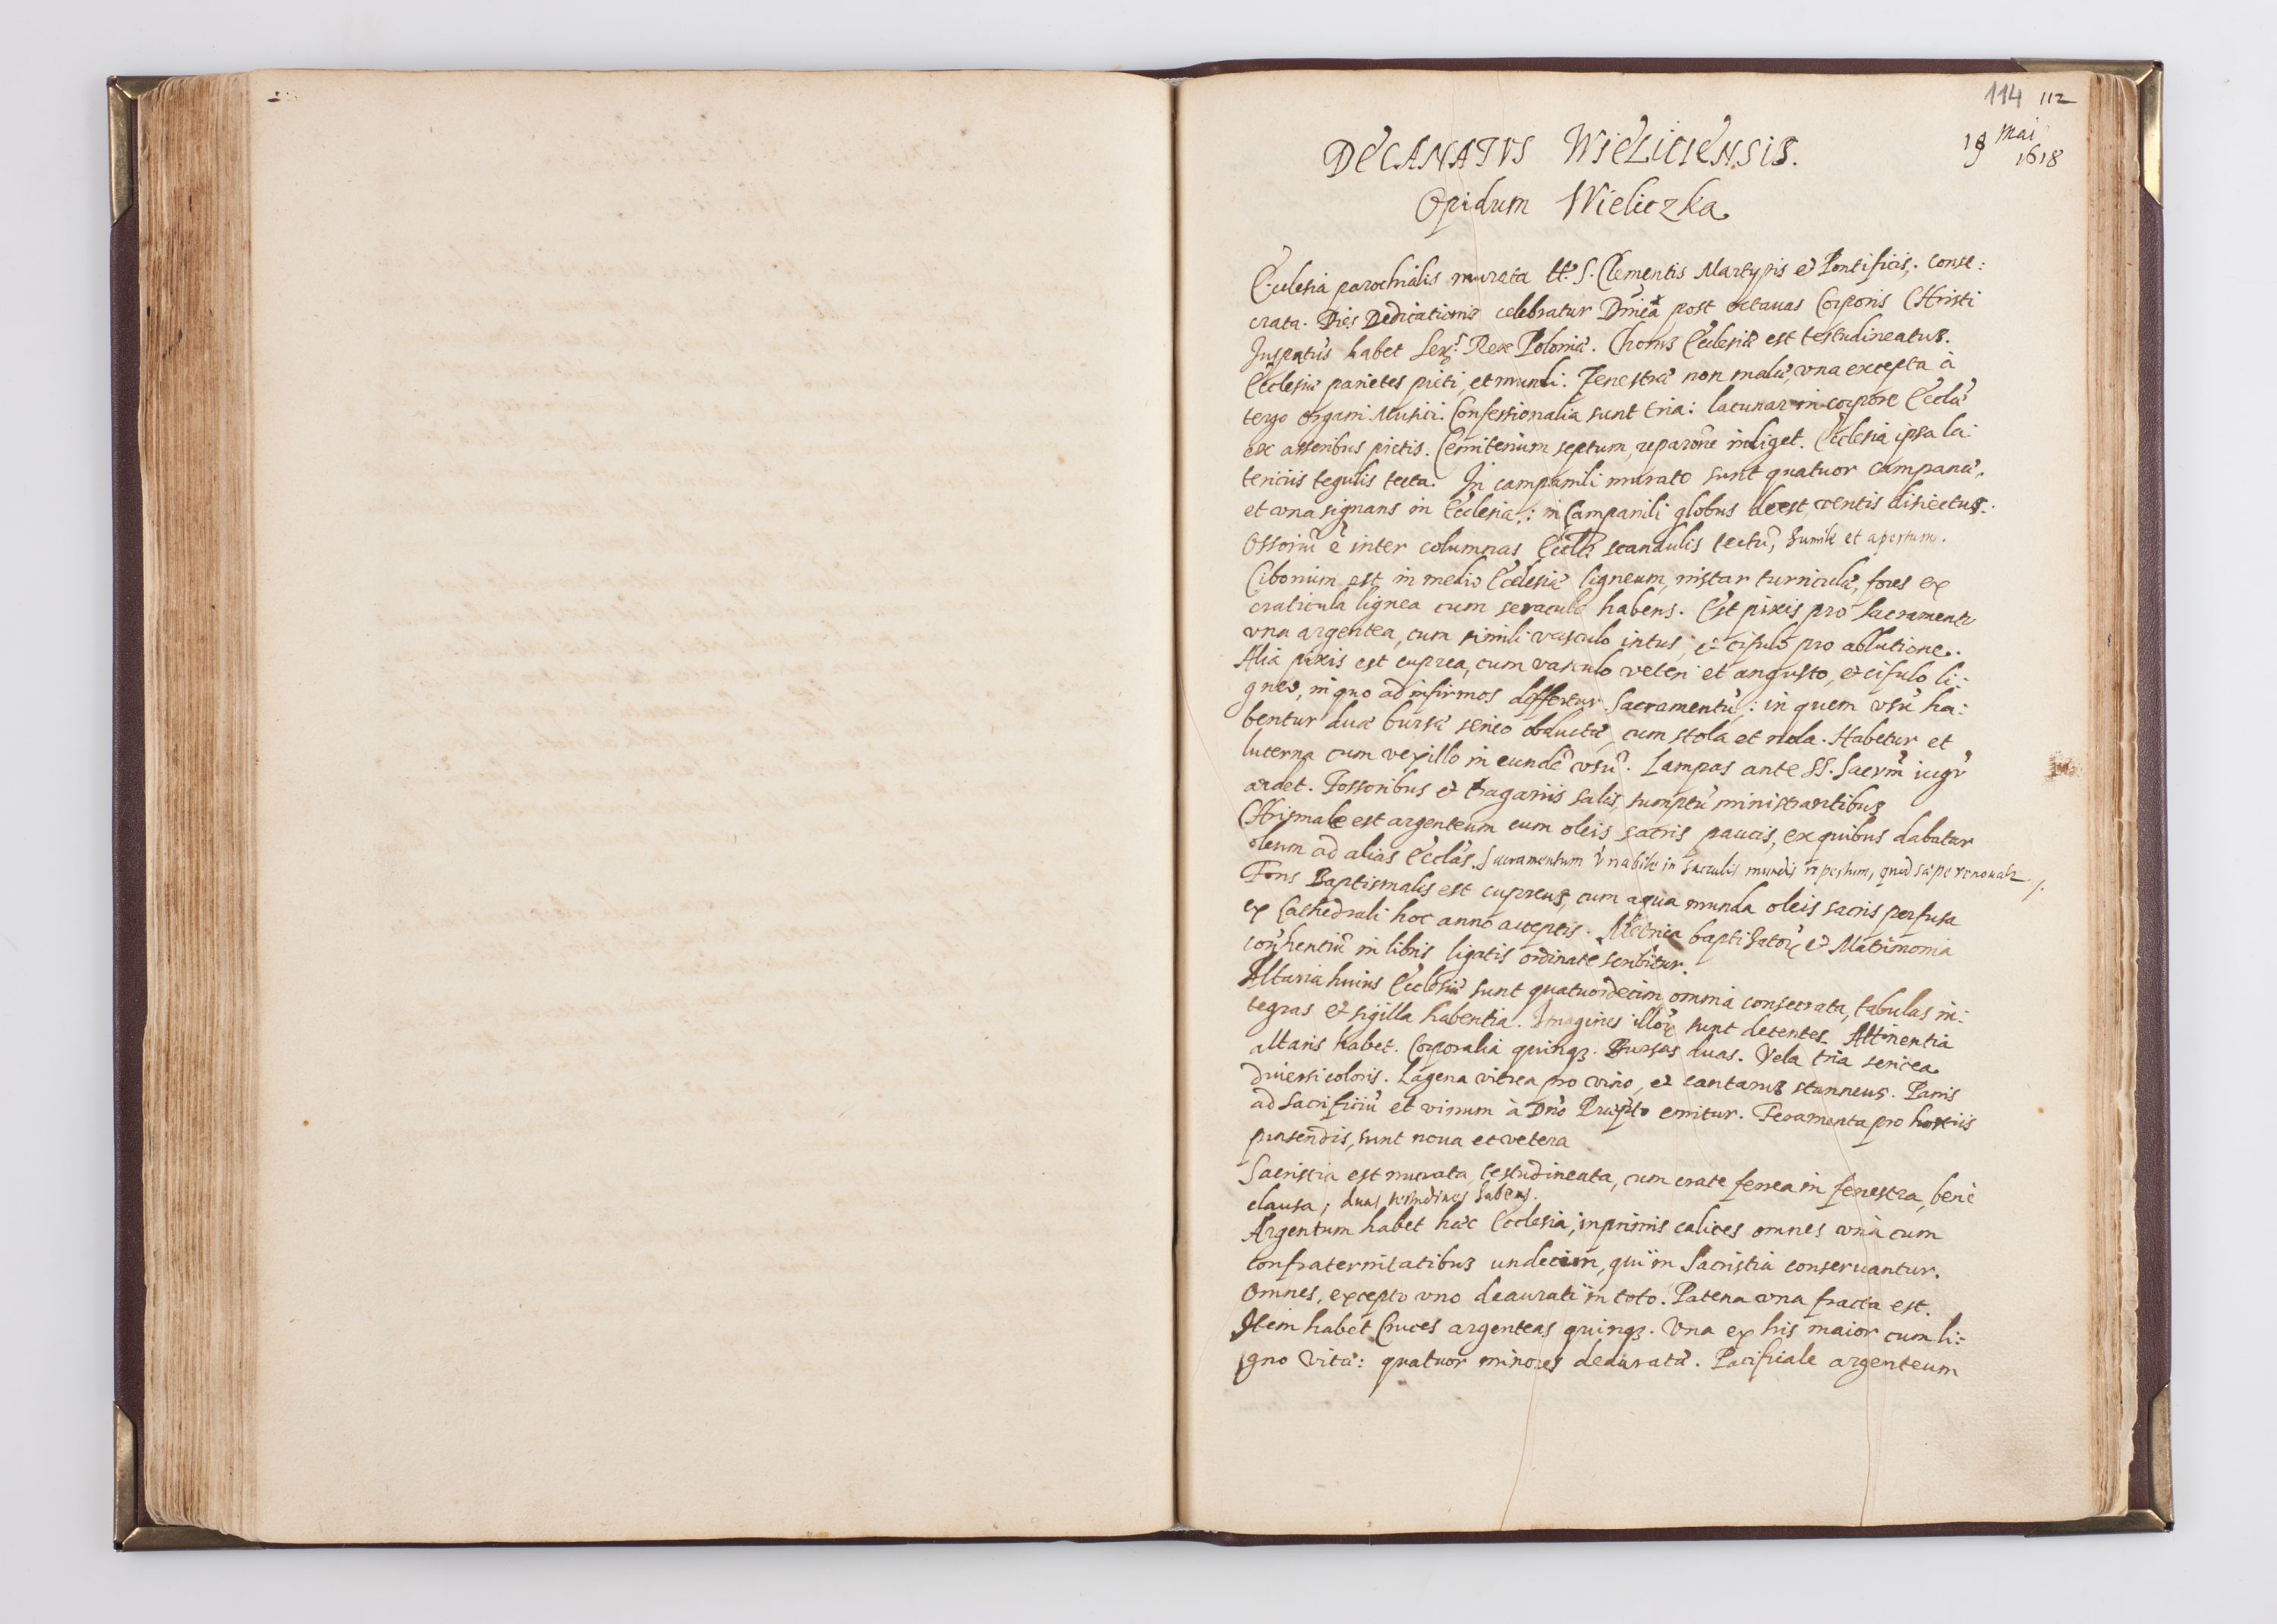 114 112
18 Mai
1618
DECANATVS WIELICIENSIS.
Opidum Wieliczka
Ecclesia parochialis murata tt. S. Clementis Martyris et Pontificis, conse:
crata. Dies Dedicationis celebratur Dnica post octauas Corporis Christi
Juspatus habet Ser. Rex Poloniæ. Chorus Ecclesiæ est testudineatus.
Ecclesiæ parietes picti et mundi. Fenestræ non malæ, vna excepta à
tergo organi Musici. Confessionalia sunt tria: lacunar in corpore Eccliæ
ex asseribus pictis. Cemiterium septum, reparõne indiget. Ecclesia ipsa la:
tericiis tegulis tecta. In campanili murato sunt quatuor campanæ,
et vna signans in Ecclesia: in Campanili globus deest, ventis disiectus.
Ossoriũ ẽ inter columnas Eccli scandulis tectũ, humile et apertum.
Cibonium est in medio Ecclesiæ ligneum, instar turriculæ, fores ex
craticula lignea cum seraculo habens. Est pixis pro Sacramento
vna argentea, cum simili vasculo intus, et cifulo pro ablutione.
Alia pixis est cuprea, cum vasculo veteri et angusto, et cifulo li:
gneo, in quo ad infirmos deffertur Sacramentũ: in quem vsũ ha:
bentur duæ bursæ serico obductæ, cum stola et nola. Habetur et
lucerna cum vexillo in eundẽ vsũ. Lampas ante SS. Sacrm̃ iugr̃
ardet. Fossoribus et tragariis salis, sumptũ ministrantibus
Chrismale est argenteum cum oleis sacris paucis, ex quibus dabatur
oleum ad alias Ecclãs. Sacramentum in sacculis mundis repertum, quod sæpe renouatr
Fons Baptismalis est cupreus, cum aqua munda oleis sacris perfusa
ex Cathedrali hoc anno acceptis. Metrica baptisator̃ et Matrimonia
cõrhentiũ in libris ligatis ordinate scribitur.
Altaria huius Ecclesiæ sunt quatuordecim omnia consecrata, tabulas in:
tegras et sigilla habentia. Imagines illor̃ sunt decentes. Attinentia
altaris habet. Corporalia quinq3. Bursas duas. Vela tria sericea
diuersi coloris. Lagena vitrea pro vino, et cantarus stanneus. Panis
ad Sacrificiũ et vinum à Dnõ Præpto emitur. Feramenta pro hostiis
pinsendis, sunt noua et vetera
Sacristia est murata testudineata, cum crate ferrea in fenestra, bene
clausa; duas habens.
Argentum habet hæc Ecclesia, inprimis calices omnes vna cum
confraternitatibus undecim, qui in Sacristia conseruantur.
Omnes, excepto vno deaurati in toto. Patena vna fracta est.
Item habet Cruces argenteas quinq3. Vna ex his maior cum li:
gno Vitæ: quatuor minores deauratæ. Pacificale argenteum